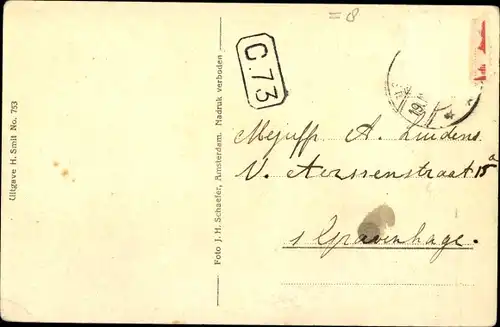 Uitgave H. Smit No. 753
Foto J. H. Schaefer, Amsterdam. Nadruk verboden
C.73
Mejuffr A. Lindens
V. Aerssenstraat 15a
s Gravenhage.